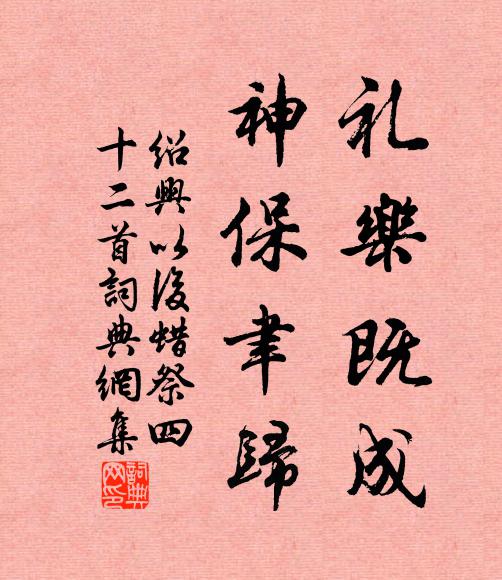 礼樂既成
神保聿歸
紹興以後蜡祭四
十二首詞典網集
詞典
网印